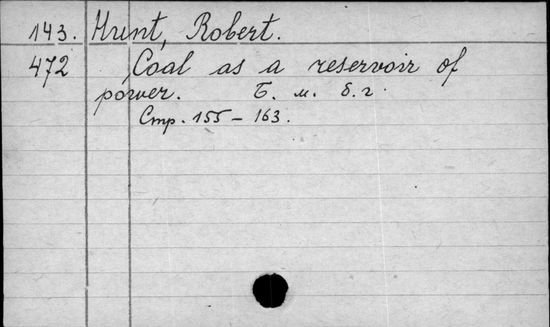 143. Hunt, Robert.
472 Coal as a reservoir of
power. Б. м. б. г.
Стр. 155-163.